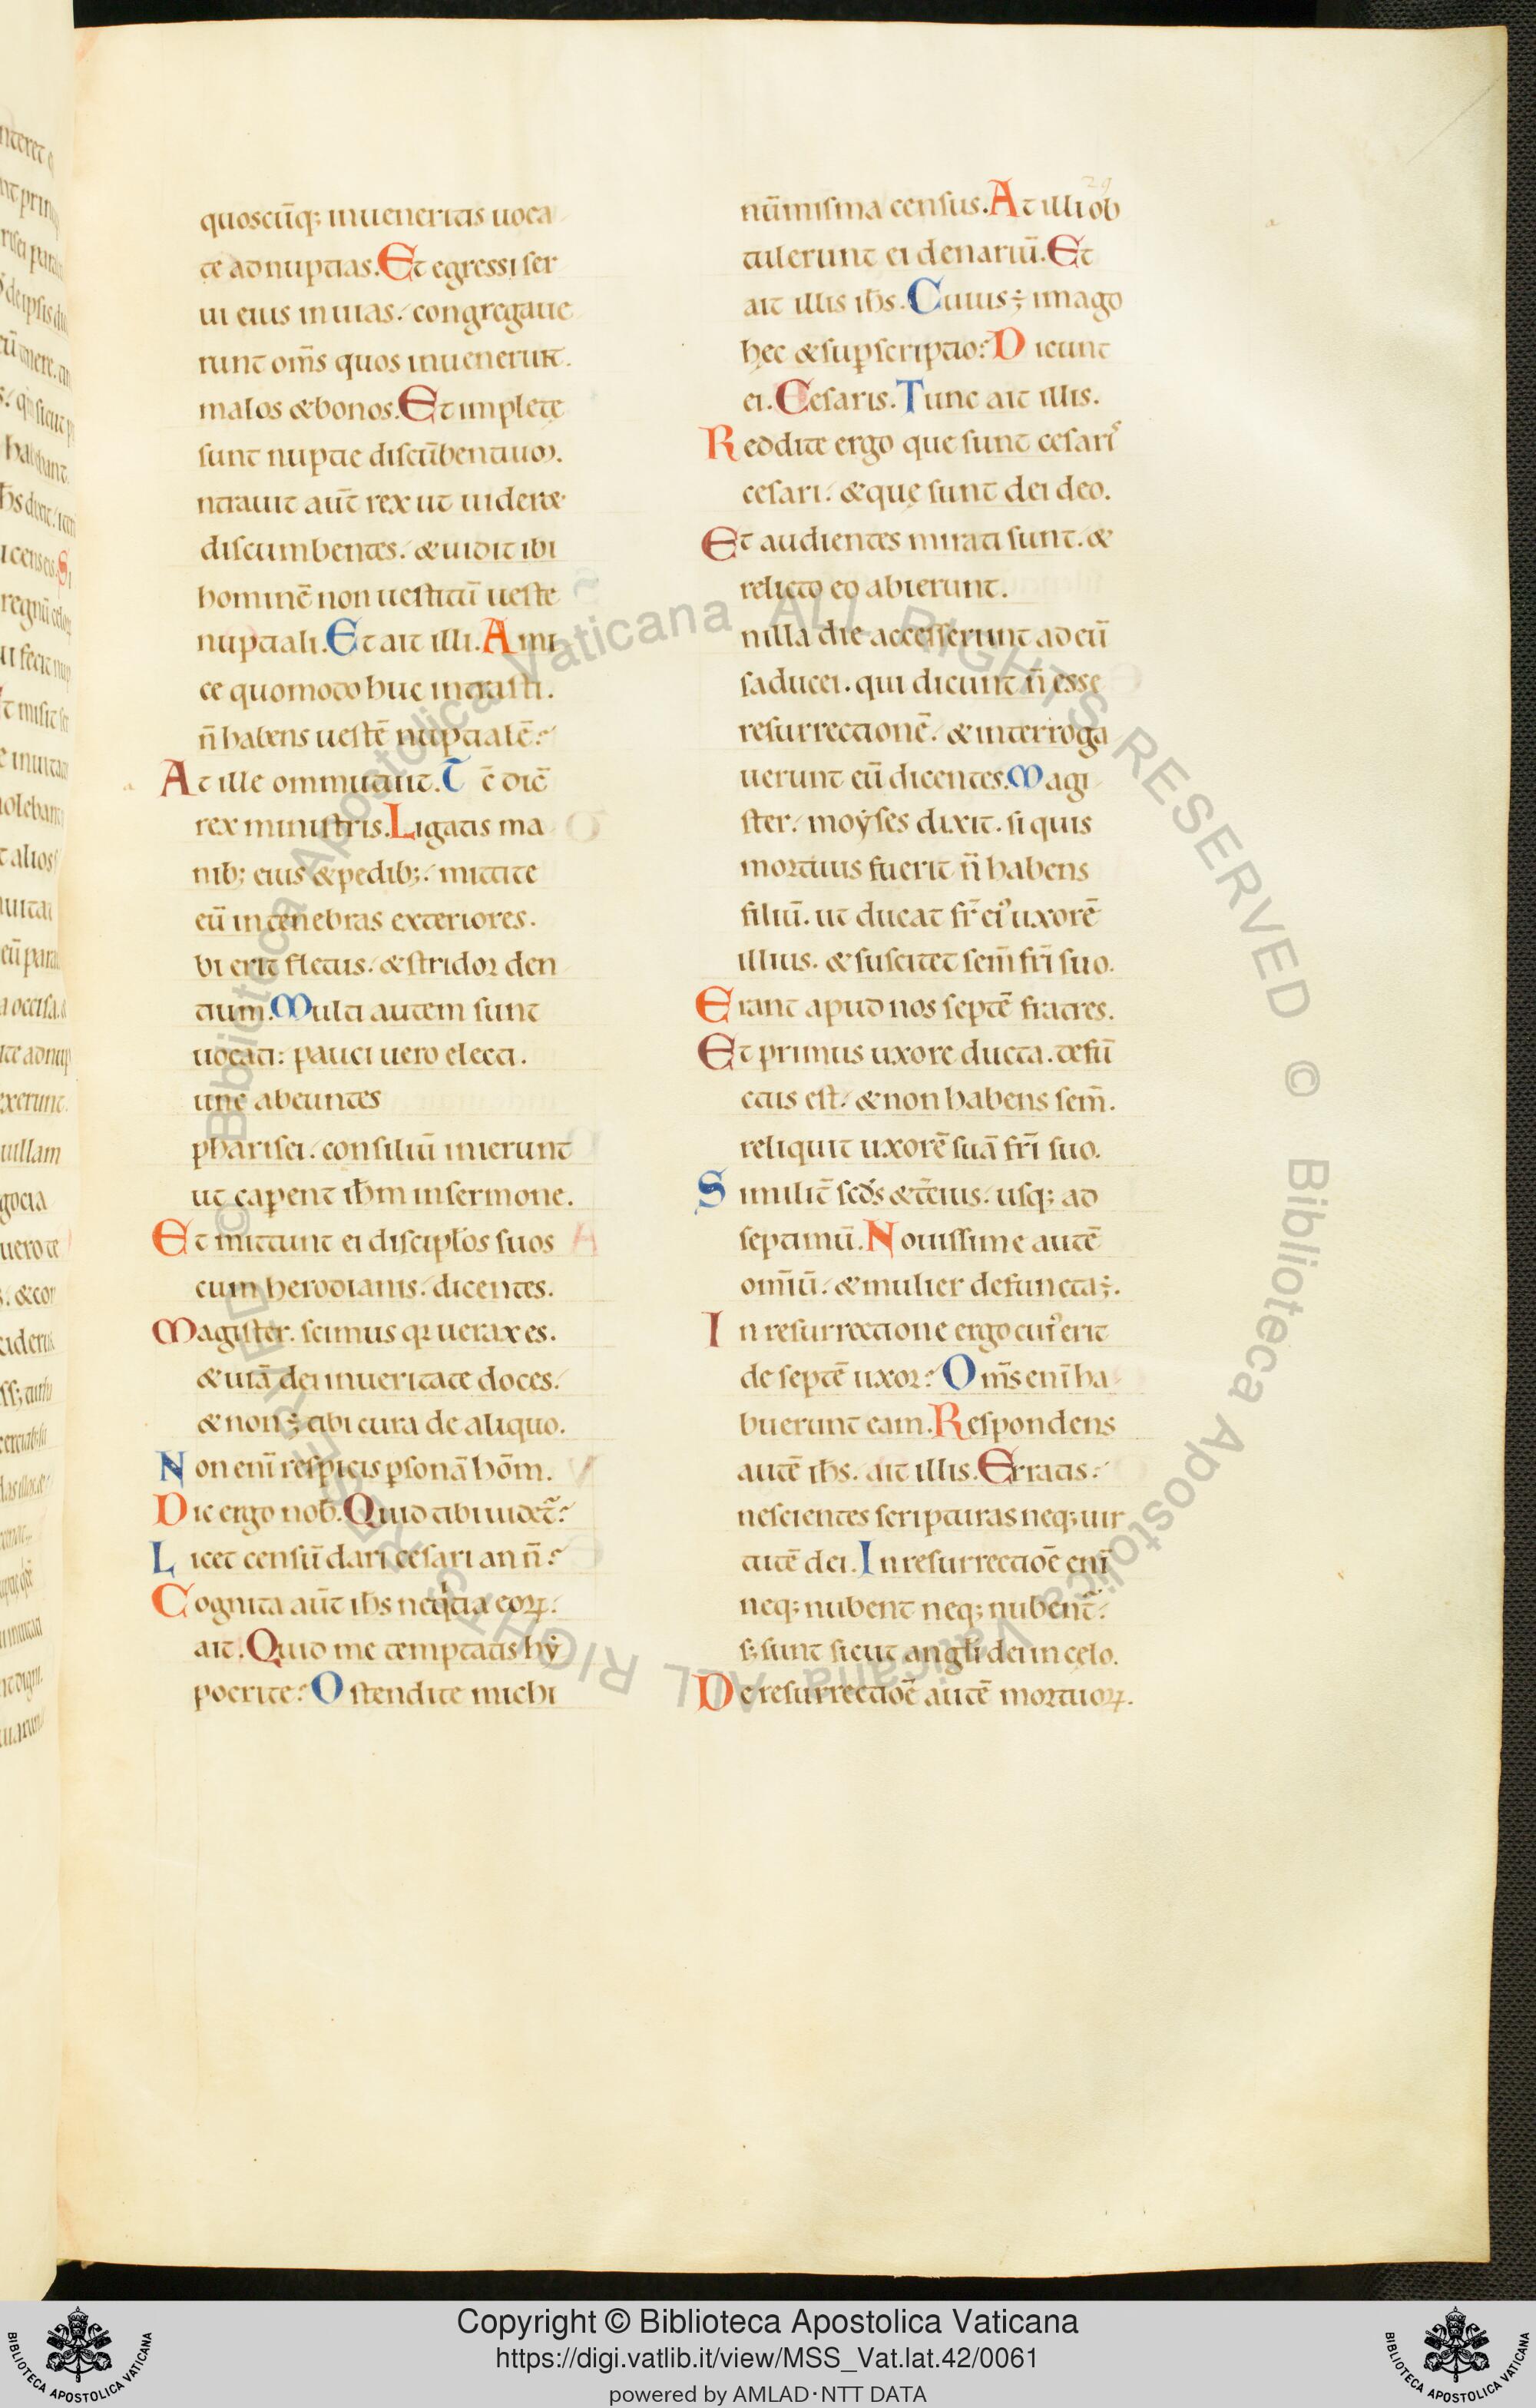 quoscũq; inueneritis uoca
te ad nuptias. Et egressi ser
ui eius in uias. congregaue
runt om̃s quos inuenerunt.
malos & bonos. Et implete
sunt nuptie discũbentiuꝫ.
ntrauit aut̃ rex ut uideret
discumbentes. & uidit ibi
hominẽ non uestitũ ueste
nuptiali. Et ait illi. Ami
ce quomodo huc intrasti.
ñ habens uestẽ nuptialẽ?
At ille ommutuit. Tc̃ dic̃
rex ministris. Ligatis ma
nib; eius & pedib;. mittite
eũ in tenebras exteriores.
bi erit fletus. & stridor den
tium. Multi autem sunt
uocati: pauci uero electi.
unc abeuntes
pharisei. consiliũ inierunt
ut caꝑent ih̃m in sermone.
Et mittunt ei discipl̃os suos
cum herodianis. dicentes.
Magister. scimus qꝛ uerax es.
& uiã dei in ueritate doces.
& non ÷ tibi cura de aliquo.
Non enĩ respicis ꝑsonã hõm.
Dic ergo nob̃. Quid tibi uidet̃?
Licet censũ dari cesari an ñ?
Cognita aut̃ ih̃s neq̇tia eoꝝ.
ait. Quid me temptatis hẏ
pocrite? Ostendite michi
29
nũmisma census. At illi ob
tulerunt ei denariũ. Et
ait illis ih̃s. Cuius ÷ imago
hec & suꝑscriptio? Dicunt
ei. Cesaris. Tunc ait illis.
Reddite ergo que sunt cesarꝰ
cesari. & quę sunt dei deo.
Et audientes mirati sunt. &
relicto eo abierunt.
n illa die accesserunt ad eũ
saducei. qui dicunt ñ esse
resurrectionẽ. & interroga
uerunt eũ dicentes. Magi
ster. moẏses dixit. si quis
mortuus fuerit ñ habens
filiũ. ut ducat fr̃ eiꝰ uxorẽ
illius. & suscitet sem̃ fr̃i suo.
Erant apud nos septẽ fratres.
Et primus uxore ducta. defũ
ctus est. & non habens sem̃.
reliquit uxorẽ suã fr̃i suo.
Similit̃ scd̃s & t̃cius. usq; ad
septimũ. Nouissime autẽ
om̃iũ. & mulier defuncta ÷.
In resurrectione ergo cuiꝰ erit
de septẽ uxor? Om̃s enĩ ha
buerunt eam. Respondens
autẽ ih̃s. ait illis. Erratis.
nescientes scripturas neq; uir
tutẽ dei. In resurrectiõe enĩ
neq; nubent neq; nubent̃.
s; sunt sicut angl̃i dei in cęlo.
De resurrectiõe autẽ mortuoꝝ.
© Biblioteca Apostolica Vaticana ALL RIGHTS RESERVED © Biblioteca Apostolica Vaticana ALL RIGHTS RESERVED
Copyright © Biblioteca Apostolica Vaticana
https://digi.vatlib.it/view/MSS_Vat.lat.42/0061
powered by AMLAD·NTT DATA
BIBLIOTECA APOSTOLICA VATICANA
BIBLIOTECA APOSTOLICA VATICANA